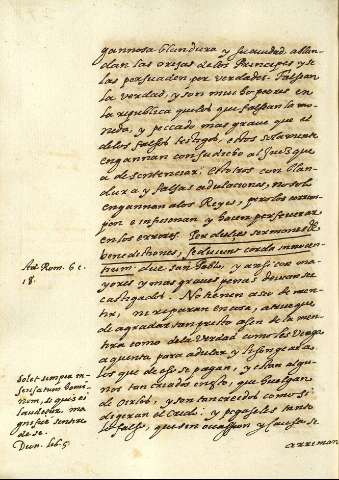 gannosa blandura y suauidad ablan-
dan las orejas de los Principes y se
las persuaden por verdades. Falsean
la verdad, y son mucho peores en
la republica que los que falsean la mo-
neda, y peccado mas graue que el
de los falsos testigos, estos solamente
engannan con su dicho al Juez que
a de sentenciar. Estotros con blan-
dura y falsas adulaciones, no solo
engannan a los Reyes, pero los corrom-
pen e infisionan y hacen perseuerar
en los errores. Per dulces sermones &
benedictiones, seducunt corda innocen-
tium dice san Pablo, y ansi con ma-
yores y mas graues penas deuian ser
castigados. No tienen asco de men-
tir, ni reparan en cosa, a trueque
de agradar, tan presto asen de la men-
tira como de la verdad como les venga
a quenta para adular y lisongear a
los que de esso se pagan, y estan algu-
nos tan creidos en esto, que huelgan
de oirlos, y son tan creidos como si
dixeran el Credo: y pegaseles tanto
lo falso, que sin occasion y causa se
arriman
Ad Rom. 6 c.
18.
Solet semper in-
sensatum domi-
num, si quis ei
laudetur, ma-
gnifice sentire
de se.
Dion. lib. 5